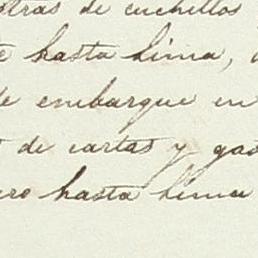 otras de cuchillos
hasta Lima,
de embarque en
de cartas y gas
ero hasta Lima